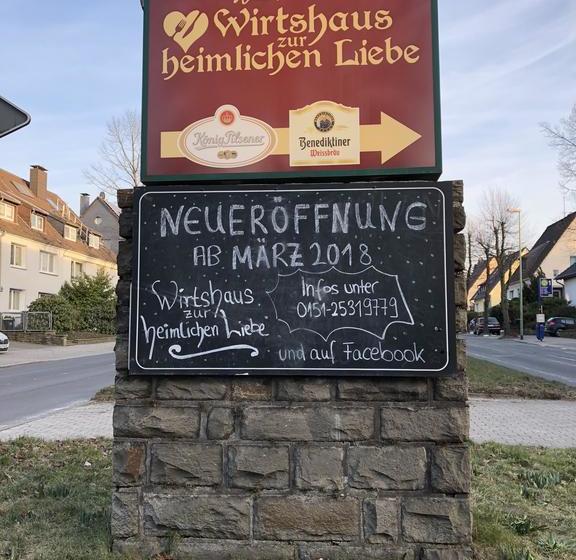 Wirtshaus
zur
heimlichen Liebe
König Pilsener
Benediktiner
Weissbräu
NEUERÖFFNUNG
AB MÄRZ 2018
Wirtshaus
zur
heimlichen Liebe
Infos unter
0151-25319779
und auf Facebook